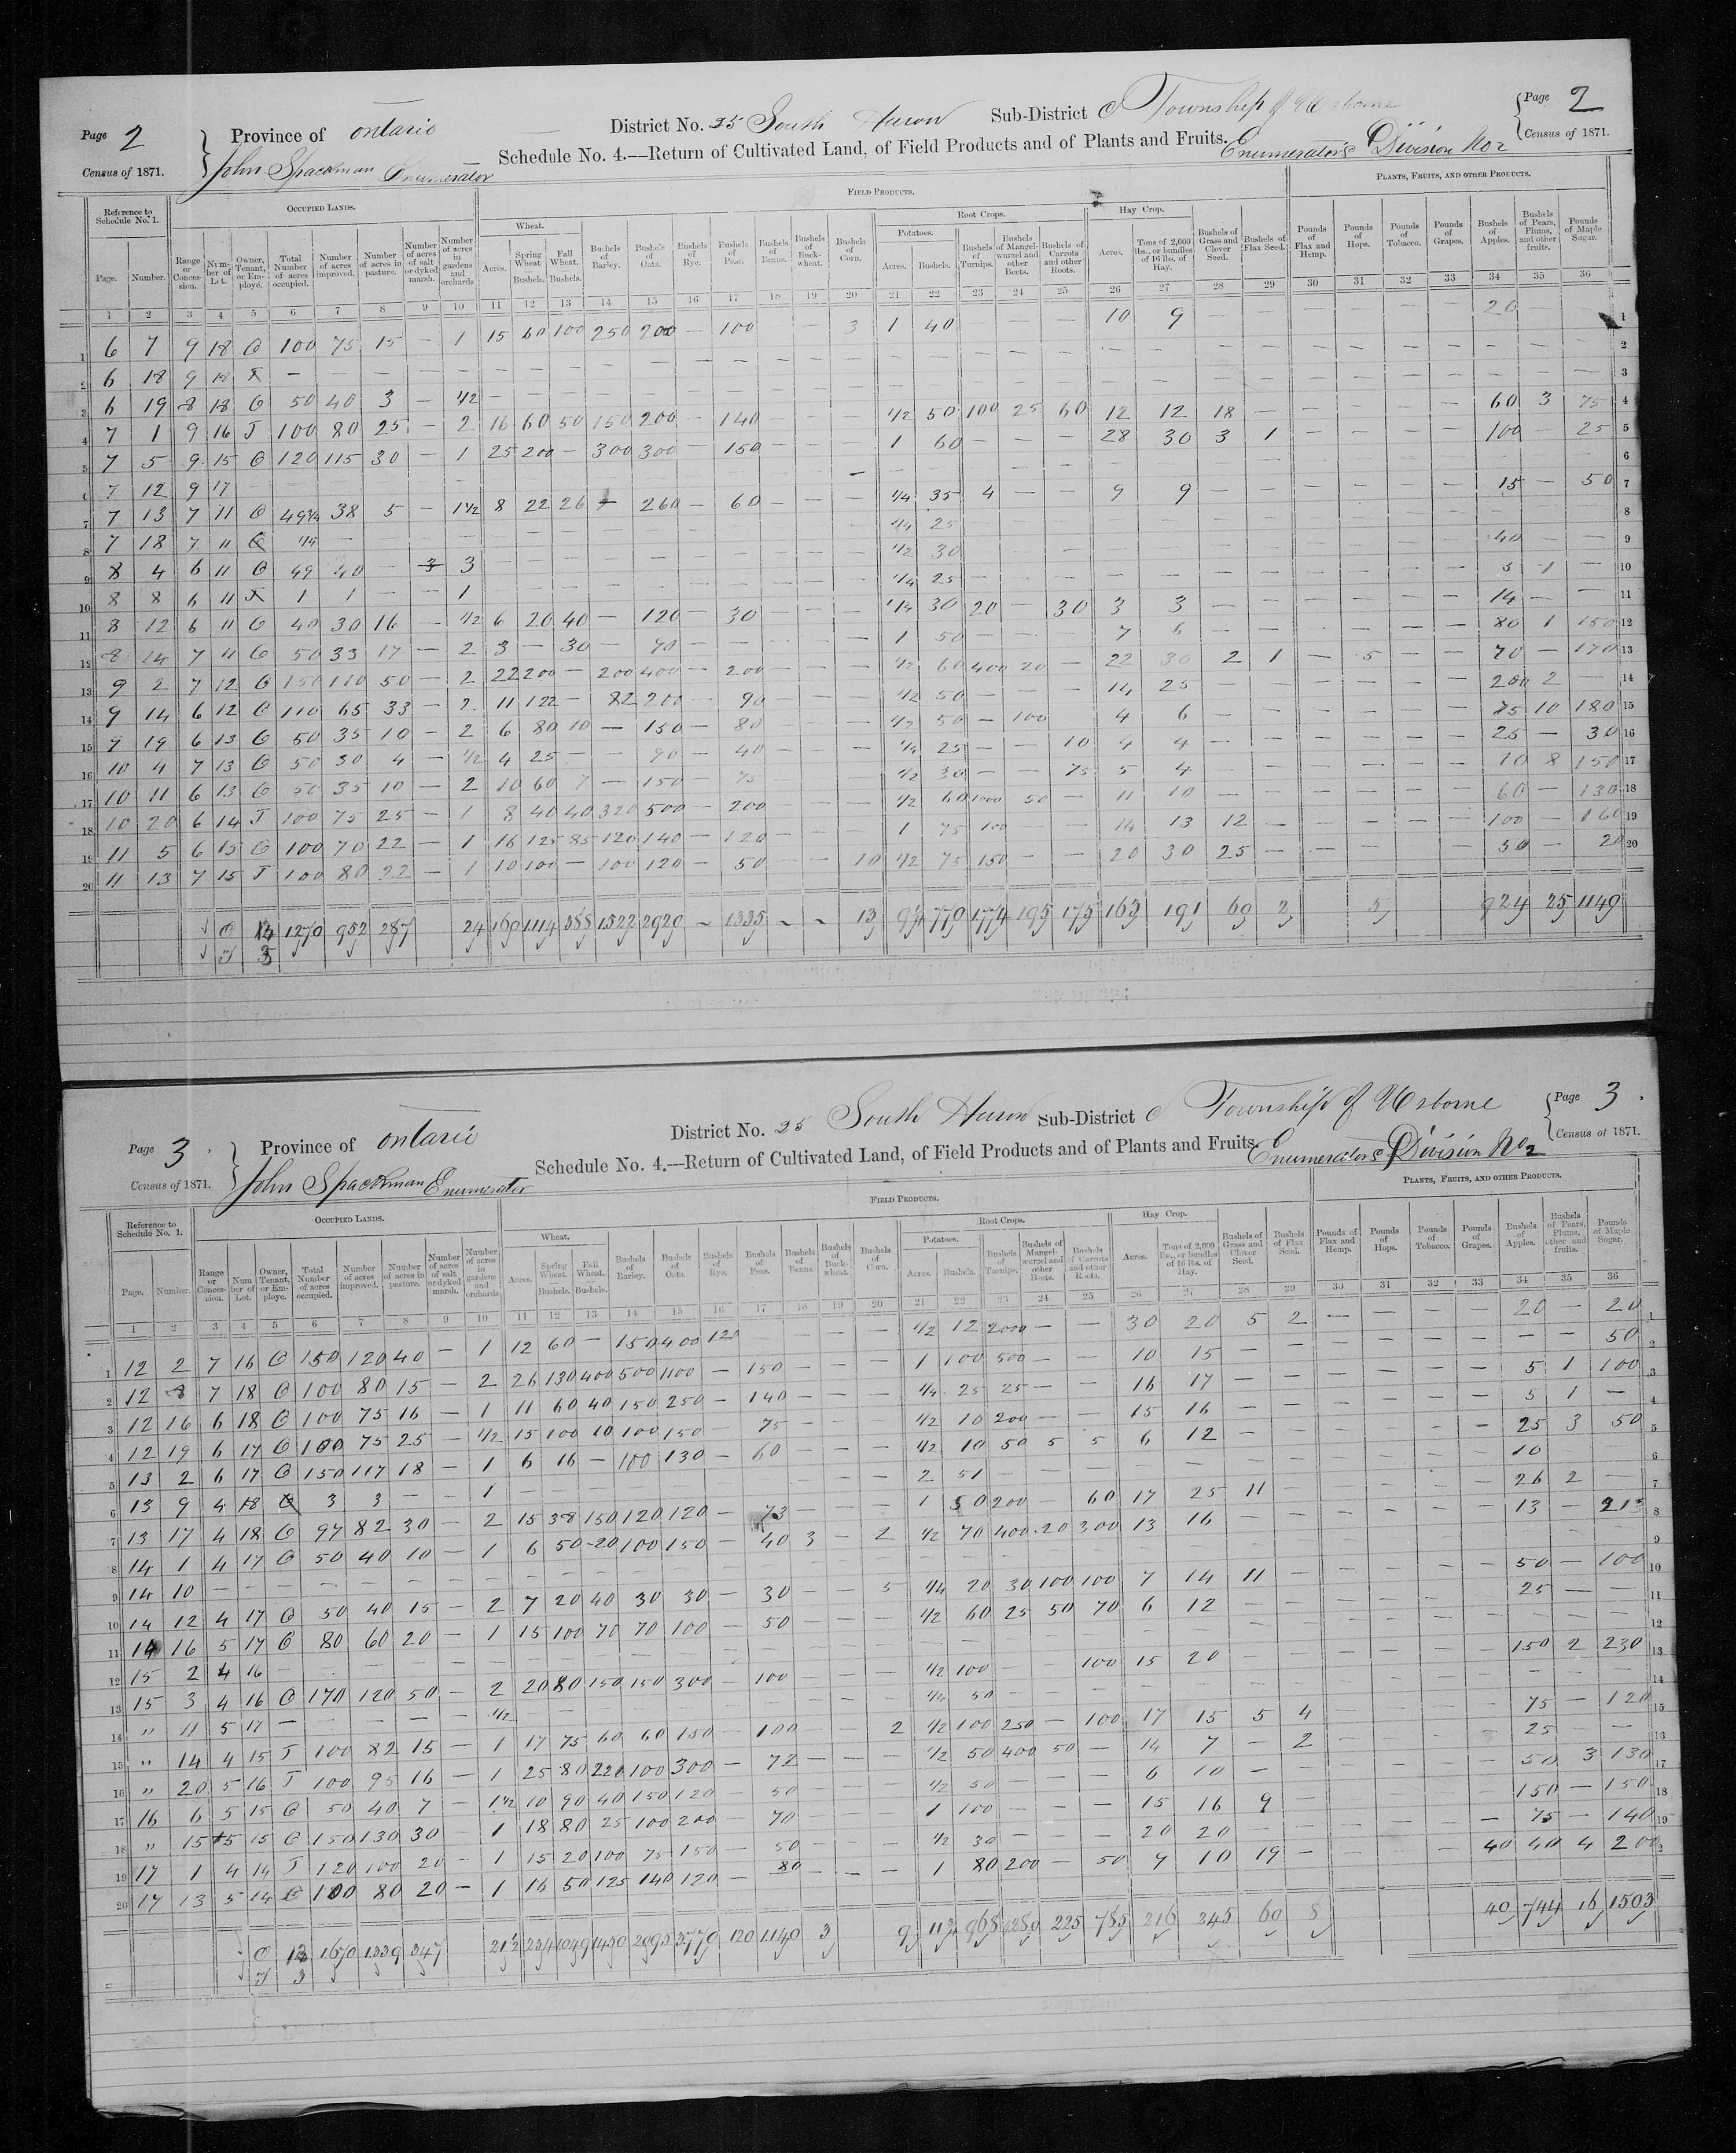 Page 2
Census of 1871.
Province of Ontario
District No. 25 South Huron Sub-District C Township of Usborne
Page 2
Census of 1871.
John Spackman Enumerator
Schedule No. 4.—Return of Cultivated Land, of Field Products and of Plants and Fruits.
Enumerator's Division No 2
Reference to Schedule No. 1. Occupied Lands. Field Products. Plants, Fruits, and other Products.
Wheat. Root Crops. Potatoes. Hay Crop.
Page. Number. Range or Concession. Number of Lot. Owner, Tenant, or Employé. Total Number of acres occupied. Number of acres improved. Number of acres in pasture. Number of acres of salt or dyked marsh. Number of acres in gardens and orchards Acres. Spring Wheat Bushels. Fall Wheat. Bushels. Bushels of Barley. Bushels of Oats. Bushels of Rye. Bushels of Peas. Bushels of Beans. Bushels of Buckwheat. Bushels of Corn. Acres. Bushels. Bushels of Turnips. Bushels of Mangel-wurzel and other Beets. Bushels of Carrots and other Roots. Acres. Tons of 2,000 lbs., or bundles of 16 lbs. of Hay. Bushels of Grass and Clover Seed. Bushels of Flax Seed. Pounds of Flax and Hemp. Pounds of Hops. Pounds of Tobacco. Pounds of Grapes. Bushels of Apples. Bushels of Pears, Plums, and other fruits. Pounds of Maple Sugar.
1 2 3 4 5 6 7 8 9 10 11 12 13 14 15 16 17 18 19 20 21 22 23 24 25 26 27 28 29 30 31 32 33 34 35 36
1 6 7 9 18 O 100 75 15 — 1 15 60 100 250 200 — 100 — — 3 1 40 — — — 10 9 — — — — — — 20 — — 1
2 6 18 9 18 — — — — — — — — — — — — — — — — — 2
3 6 19 8 18 O 50 40 3 — 1/2 — — — — — — — — — — — — 3
4 7 1 9 16 T 100 80 25 — 2 16 60 50 150 200 — 140 — — — 1/2 50 100 25 60 12 12 18 — — — — — 60 3 75 4
5 7 5 9 15 O 120 115 30 — 1 25 200 — 300 300 — 150 — — — 1 60 — — — 28 30 3 1 — — — — 100 — 25 5
6 7 12 9 17 — — — — — — — — — — 6
7 7 13 7 11 O 49 3/4 38 5 — 1 1/2 8 22 26 260 — 60 — — — 1/4 35 4 — — 9 9 — — — — — — 15 — 50 7
8 7 18 7 11 1/4 — — — — — — — 1/4 25 — — — — 8
9 8 4 6 11 O 49 40 — 3 3 — — — — — — — 1/2 30 — — — — 40 — — 9
10 8 8 6 11 1 1 — — 1 — — — — — — 1/4 25 — — — — 5 1 — 10
11 8 12 6 11 O 40 30 16 — 1/2 6 20 40 — 120 — 30 — — — 1/4 30 20 — 30 3 3 — — — — — — 14 — — 11
12 8 14 7 11 O 50 33 17 — 2 3 — 30 — 90 — — — — — 1 50 — — — 7 6 — — — — — — 80 1 150 12
13 9 2 7 12 O 150 110 50 — 2 22 200 — 200 400 — 200 — — — 1/2 60 400 20 — 22 30 2 1 — 5 — — 70 — 170 13
14 9 14 6 12 O 110 65 33 — 2 11 122 — 82 200 — 90 — — — 1/2 50 — — — 14 25 — — — — — — 200 2 — 14
15 9 19 6 13 O 50 35 10 — 2 6 80 10 — 150 — 80 — — — 1/2 50 — 100 4 6 — — — — — — 75 10 180 15
16 10 4 7 13 O 50 30 4 — 1/2 4 25 — — 90 — 40 — — — 1/4 25 — — 10 4 4 — — — — — — 25 — 30 16
17 10 11 6 13 O 50 35 10 — 2 10 60 7 — 150 — 75 — — — 1/2 30 — — 75 5 4 — — — — — — 10 8 150 17
18 10 20 6 14 T 100 75 25 — 1 8 40 40 320 500 — 200 — — — 1/2 60 1000 50 — 11 10 — — — — — — 60 — 130 18
19 11 5 6 15 O 100 70 22 — 1 16 125 85 120 140 — 120 — — — 1 75 100 — — 14 13 12 — — — — — 100 — 160 19
20 11 13 7 15 T 100 80 22 — 1 10 100 — 100 120 — 50 — — 10 1/2 75 150 — — 20 30 25 — — — — — 50 — 20 20
O 14 1270 952 287 24 160 1114 388 1522 2920 — 1335 — — 13 9 1/4 770 1774 195 175 163 191 60 2 5 924 25 1149
T 3
Page 3
Census of 1871.
Province of Ontario
District No. 25 South Huron Sub-District C Township of Usborne
Page 3
Census of 1871.
John Spackman Enumerator
Schedule No. 4.—Return of Cultivated Land, of Field Products and of Plants and Fruits.
Enumerators Division No 2
Reference to Schedule No. 1. Occupied Lands. Field Products. Plants, Fruits, and other Products.
Wheat. Root Crops. Potatoes. Hay Crop.
Page. Number. Range or Concession. Number of Lot. Owner, Tenant, or Employe. Total Number of acres occupied. Number of acres improved. Number of acres in pasture. Number of acres of salt or dyked marsh. Number of acres in gardens and orchards Acres. Spring Wheat. Bushels. Fall Wheat. Bushels. Bushels of Barley. Bushels of Oats. Bushels of Rye. Bushels of Peas. Bushels of Beans. Bushels of Buckwheat. Bushels of Corn. Acres. Bushels. Bushels of Turnips. Bushels of Mangel-wurzel and other Beets. Bushels of Carrots and other Roots. Acres. Tons of 2,000 lbs., or bundles of 16 lbs. of Hay. Bushels of Grass and Clover Seed. Bushels of Flax Seed. Pounds of Flax and Hemp. Pounds of Hops. Pounds of Tobacco. Pounds of Grapes. Bushels of Apples. Bushels of Pears, Plums, and other fruits. Pounds of Maple Sugar.
1 2 3 4 5 6 7 8 9 10 11 12 13 14 15 16 17 18 19 20 21 22 23 24 25 26 27 28 29 30 31 32 33 34 35 36
1 12 2 7 16 O 150 120 40 — 1 12 60 — 150 400 120 — — — — 1/2 12 2000 — — 30 20 5 2 — — — — 20 — 20 1
2 12 8 7 18 O 100 80 15 — 2 26 130 400 500 1100 — 150 — — — 1 100 500 — — 10 15 — — — — — — — — 50 2
3 12 16 6 18 O 100 75 16 — 1 11 60 40 150 250 — 140 — — — 1/4 25 25 — — 16 17 — — — — — — 5 1 100 3
4 12 19 6 17 O 100 75 25 — 1/2 15 100 10 100 150 — 75 — — — 1/2 10 200 — — 15 16 — — — — — — 5 1 — 4
5 13 2 6 17 O 150 117 18 — 1 6 16 — 100 130 — 60 — — — 1/2 10 50 5 5 6 12 — — — — — — 25 3 50 5
6 13 9 4 18 3 3 — — 1 — — — — — — 2 51 — — — — 10 6
7 13 17 4 18 O 97 82 30 — 2 15 38 150 120 120 — 73 — — — 1 50 200 — 60 17 25 11 — — — — — 26 2 — 7
8 14 1 4 17 O 50 40 10 — 1 6 50 20 100 150 — 40 3 — 2 1/2 70 400 20 300 13 16 — — — — — — 13 — 213 8
9 14 10 — — — — — — — — — — 9
10 14 12 4 17 O 50 40 15 — 2 7 20 40 30 30 — 30 — — 5 1/4 20 30 100 100 7 14 11 — — — — — 50 — 100 10
11 14 16 5 17 O 80 60 20 — 1 15 100 70 70 100 — 50 — — — 1/2 60 25 50 70 6 12 — — — — — — 25 — — 11
12 15 2 4 16 — — — — — — — — — 12
13 15 3 4 16 O 170 120 50 — 2 20 80 150 150 300 — 100 — — — 1/2 100 — — 100 15 20 — — — — — — 150 2 230 13
14 " 11 5 17 — — — — — 1/2 — — — — — 1/4 50 — — — — 14
15 " 14 4 15 T 100 82 15 — 1 17 75 60 60 150 — 100 — — 2 1/2 100 250 — 100 17 15 5 4 — — — — 75 — 120 15
16 " 20 5 16 T 100 95 16 — 1 25 80 220 100 300 — 72 — — — 1/2 50 400 50 — 14 7 — 2 — — — — 25 — — 16
17 16 6 5 15 O 50 40 7 — 1 1/2 10 90 40 150 120 — 50 — — — 1/2 50 — — — 6 10 — — — — — — 50 3 130 17
18 " 15 5 15 O 150 130 30 — 1 18 80 25 100 200 — 70 — — — 1 100 — — — 15 16 9 — — — — — 150 — 150 18
19 17 1 4 14 T 120 100 20 — 1 15 20 100 75 150 — 50 — — — 1/2 30 — — — 20 20 — — — — — — 75 — 140 19
20 17 13 5 14 O 100 80 20 — 1 16 50 125 140 120 — 80 — — — 1 80 200 — 50 9 10 19 — — — — 40 40 4 200
O 1670 1339 347 21 1/2 234 1049 1450 2095 3770 120 1140 3 9 968 4280 225 785 216 245 60 8 40 744 16 1503
T 3